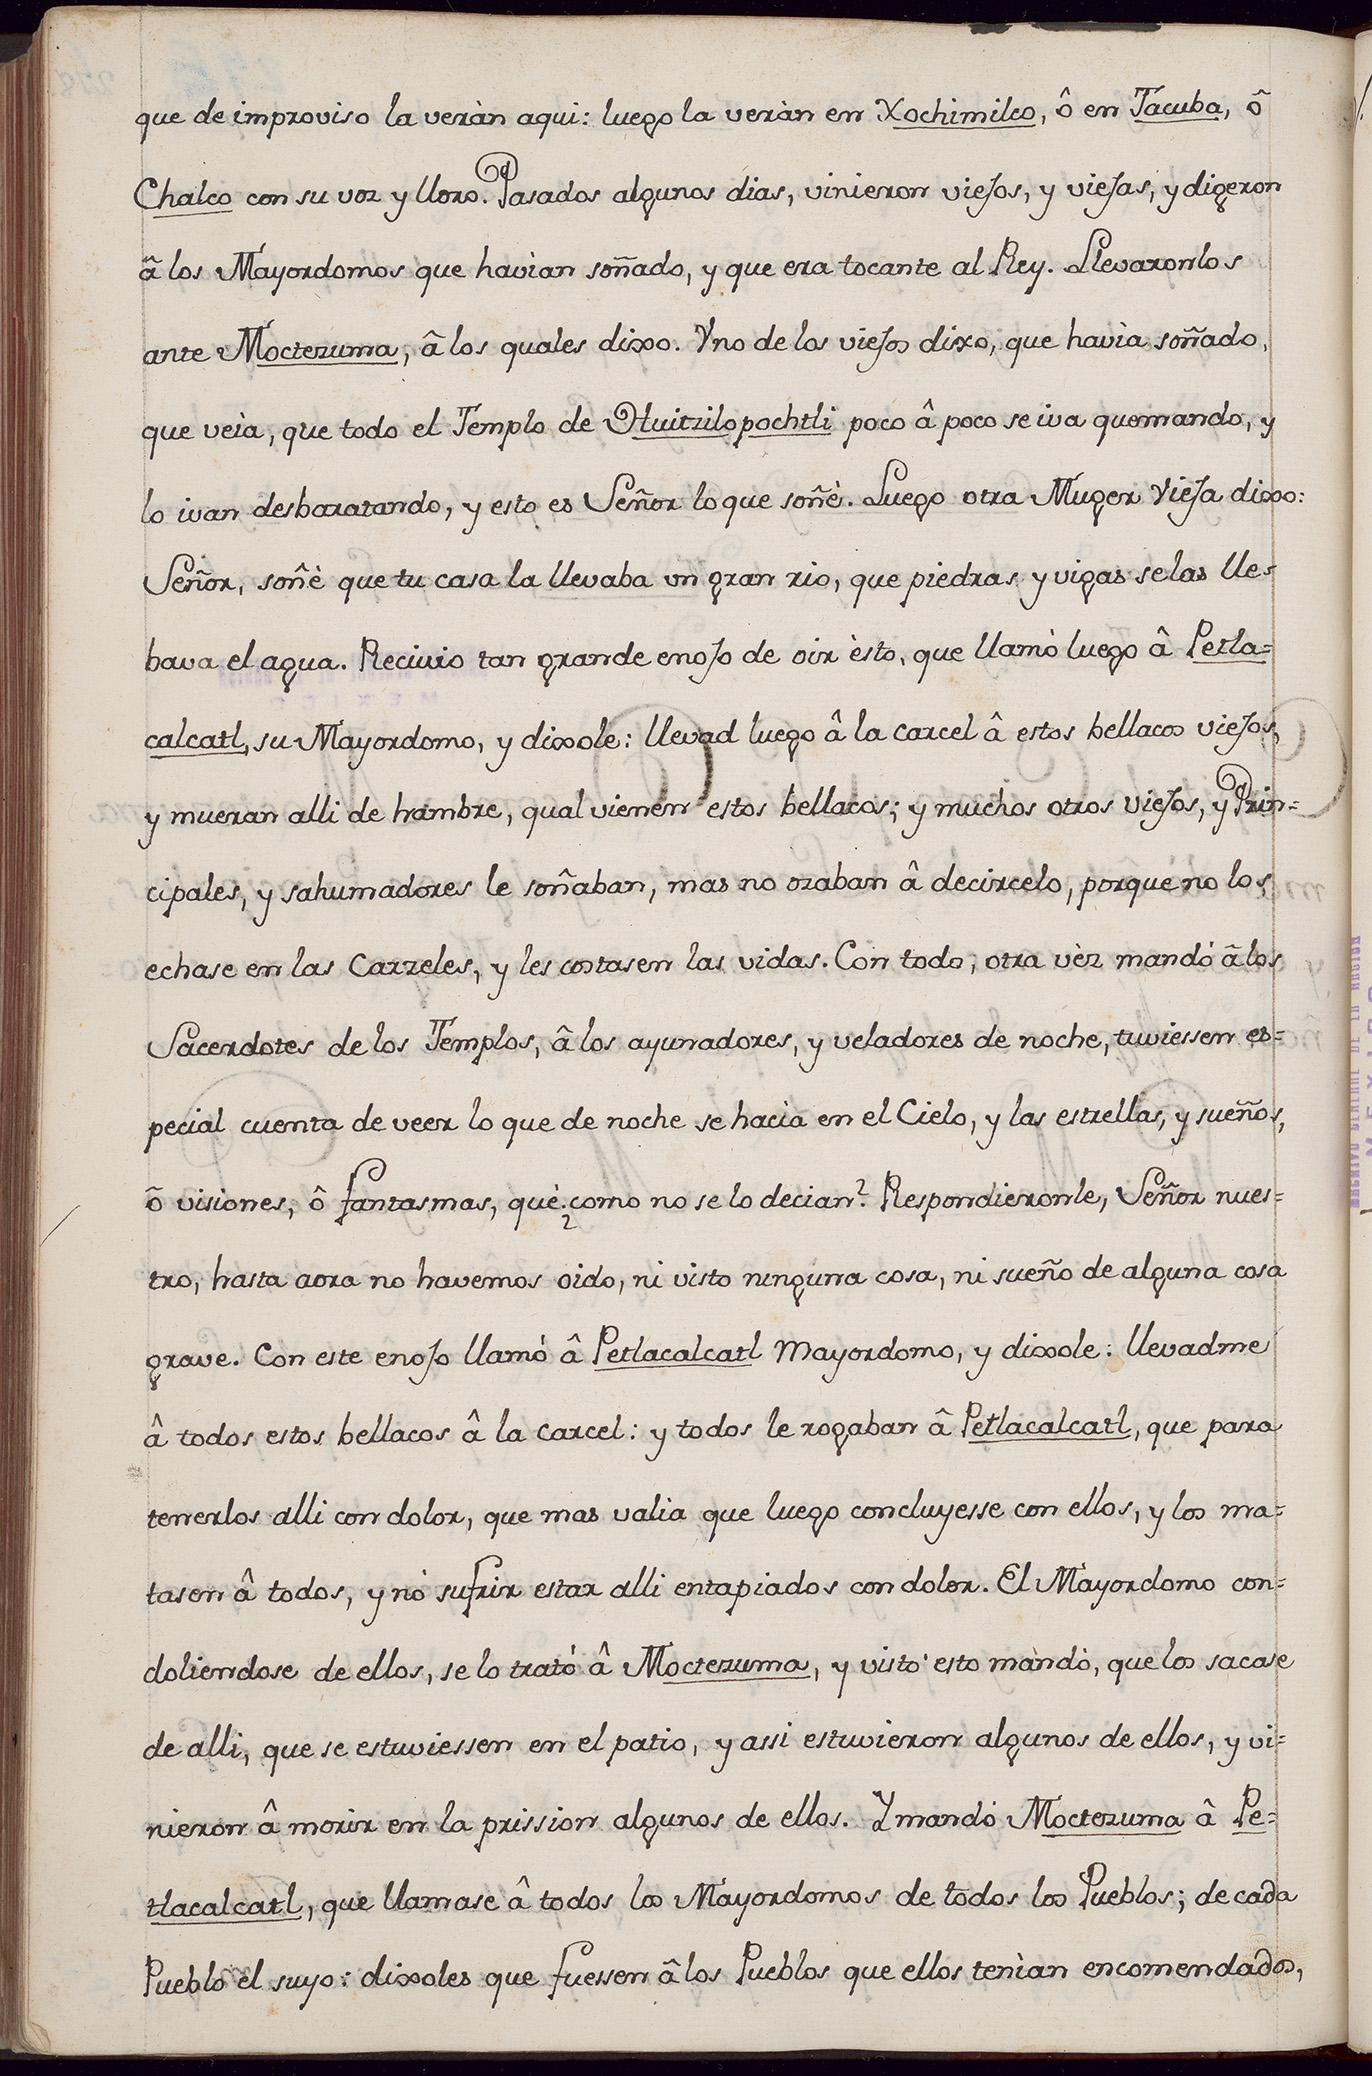 que de improviso la veràn aqui: luego la veràn en Xochimilco, ô en Tacuba, ô
Chalco con su voz y lloro. Pasados algunos dias, vinieron viejos, y viejas, y digeron
â los Mayordomos que havian soñado, y que era tocante al Rey. Llevaronlos
ante Moctezuma, â los quales dixo. Vno de los viejos dixo, que havia soñado,
que veìa, que todo el Templo de Huitzilopochtli poco â poco se iva quemando, y
lo ivan desbaratando, y esto es Señor lo que soñè. Luego otra Muger Vieja dixo:
Señor, soñè que tu casa la llevaba un gran rio, que piedras y vigas se las lle-
bava el agua. Recivio tan grande enojo de oir èsto, que llamò luego â Petla=
calcatl, su Mayordomo, y dixole: llevad luego â la carcel â estos bellacos viejos,
y mueran alli de hambre, qual vienen estos bellacos; y muchos otros viejos, y Prin=
cipales, y sahumadores le soñaban, mas no ozaban â decircelo, porque no los
echase en las Carzeles, y les costasen las vidas. Con todo, otra vèz mandó â los
Sacerdotes de los Templos, â los ayunadores, y veladores de noche, tuviessen es=
pecial cuenta de veer lo que de noche se hacìa en el Cielo, y las estrellas, y sueños,
ô visiones, ô fantasmas, què ¿como no se lo decian? Respondieronle, Señor nues-
tro, hasta aora no havemos oido, ni visto ninguna cosa, ni sueño de alguna cosa
grave. Con este enojo llamó â Petlacalcatl Mayordomo, y dixole: llevadme
â todos estos bellacos â la carcel: y todos le rogaban â Petlacalcatl, que para
tenerlos alli con dolor, que mas valia que luego concluyesse con ellos, y los ma=
tasen â todos, y nó sufrir estar alli entapiados con dolor. El Mayordomo con=
doliendose de ellos, se lo trató â Moctezuma, y visto esto mandò, que los sacase
de alli, que se estuviessen en el patio, y assi estuvieron algunos de ellos, y vi=
nieron â morir en la prission algunos de ellos. Y mandó Moctezuma â Pe=
tlacalcatl, que llamase â todos los Mayordomos de todos los Pueblos; de cada
Pueblo el suyo: dixoles que fuessen â los Pueblos que ellos tenìan encomendados,
ARCHIVO GENERAL DE LA NACION
MEXICO